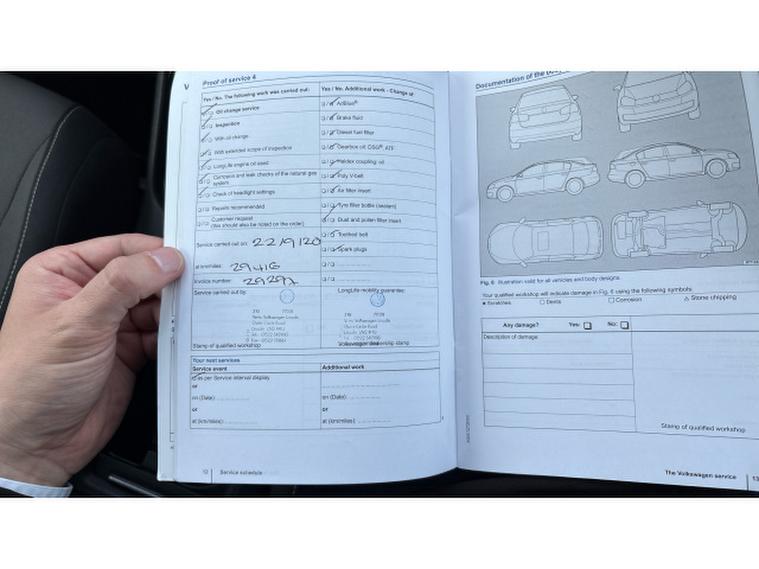 Proof of service 4
Yes / No. The following work was carried out:
Oil change service
Inspection
With oil change
With extended scope of inspection
LongLife engine oil used
Corrosion and leak checks of the natural gas system
Check of headlight settings
Repairs recommended
Customer request
(this should also be noted on the order)
Service carried out on: 22/9/20
at km/miles: 29416
Invoice number:
Service carried out by:
Stamp of qualified workshop
Yes / No. Additional work - Change of
AdBlue®
Brake fluid
Diesel fuel filter
Gearbox oil: DSG®, ATF
Haldex coupling: oil
Poly V-belt
Air filter insert
Tyre filler bottle (sealant)
Dust and pollen filter insert
Toothed belt
Spark plugs
LongLife mobility guarantee:
Volkswagen dealership stamp
Your next services
Service event
Additional work
as per Service interval display
or
on (Date)
or
at (km/miles)
on (Date)
or
at (km/miles)
12 Service schedule
Documentation of the
Fig. 6 Illustration valid for all vehicles and body designs.
Your qualified workshop will indicate damage in Fig. 6 using the following symbols:
Scratches
Dents
Corrosion
Stone chipping
Any damage? Yes: No:
Description of damage:
Stamp of qualified workshop
The Volkswagen service 13